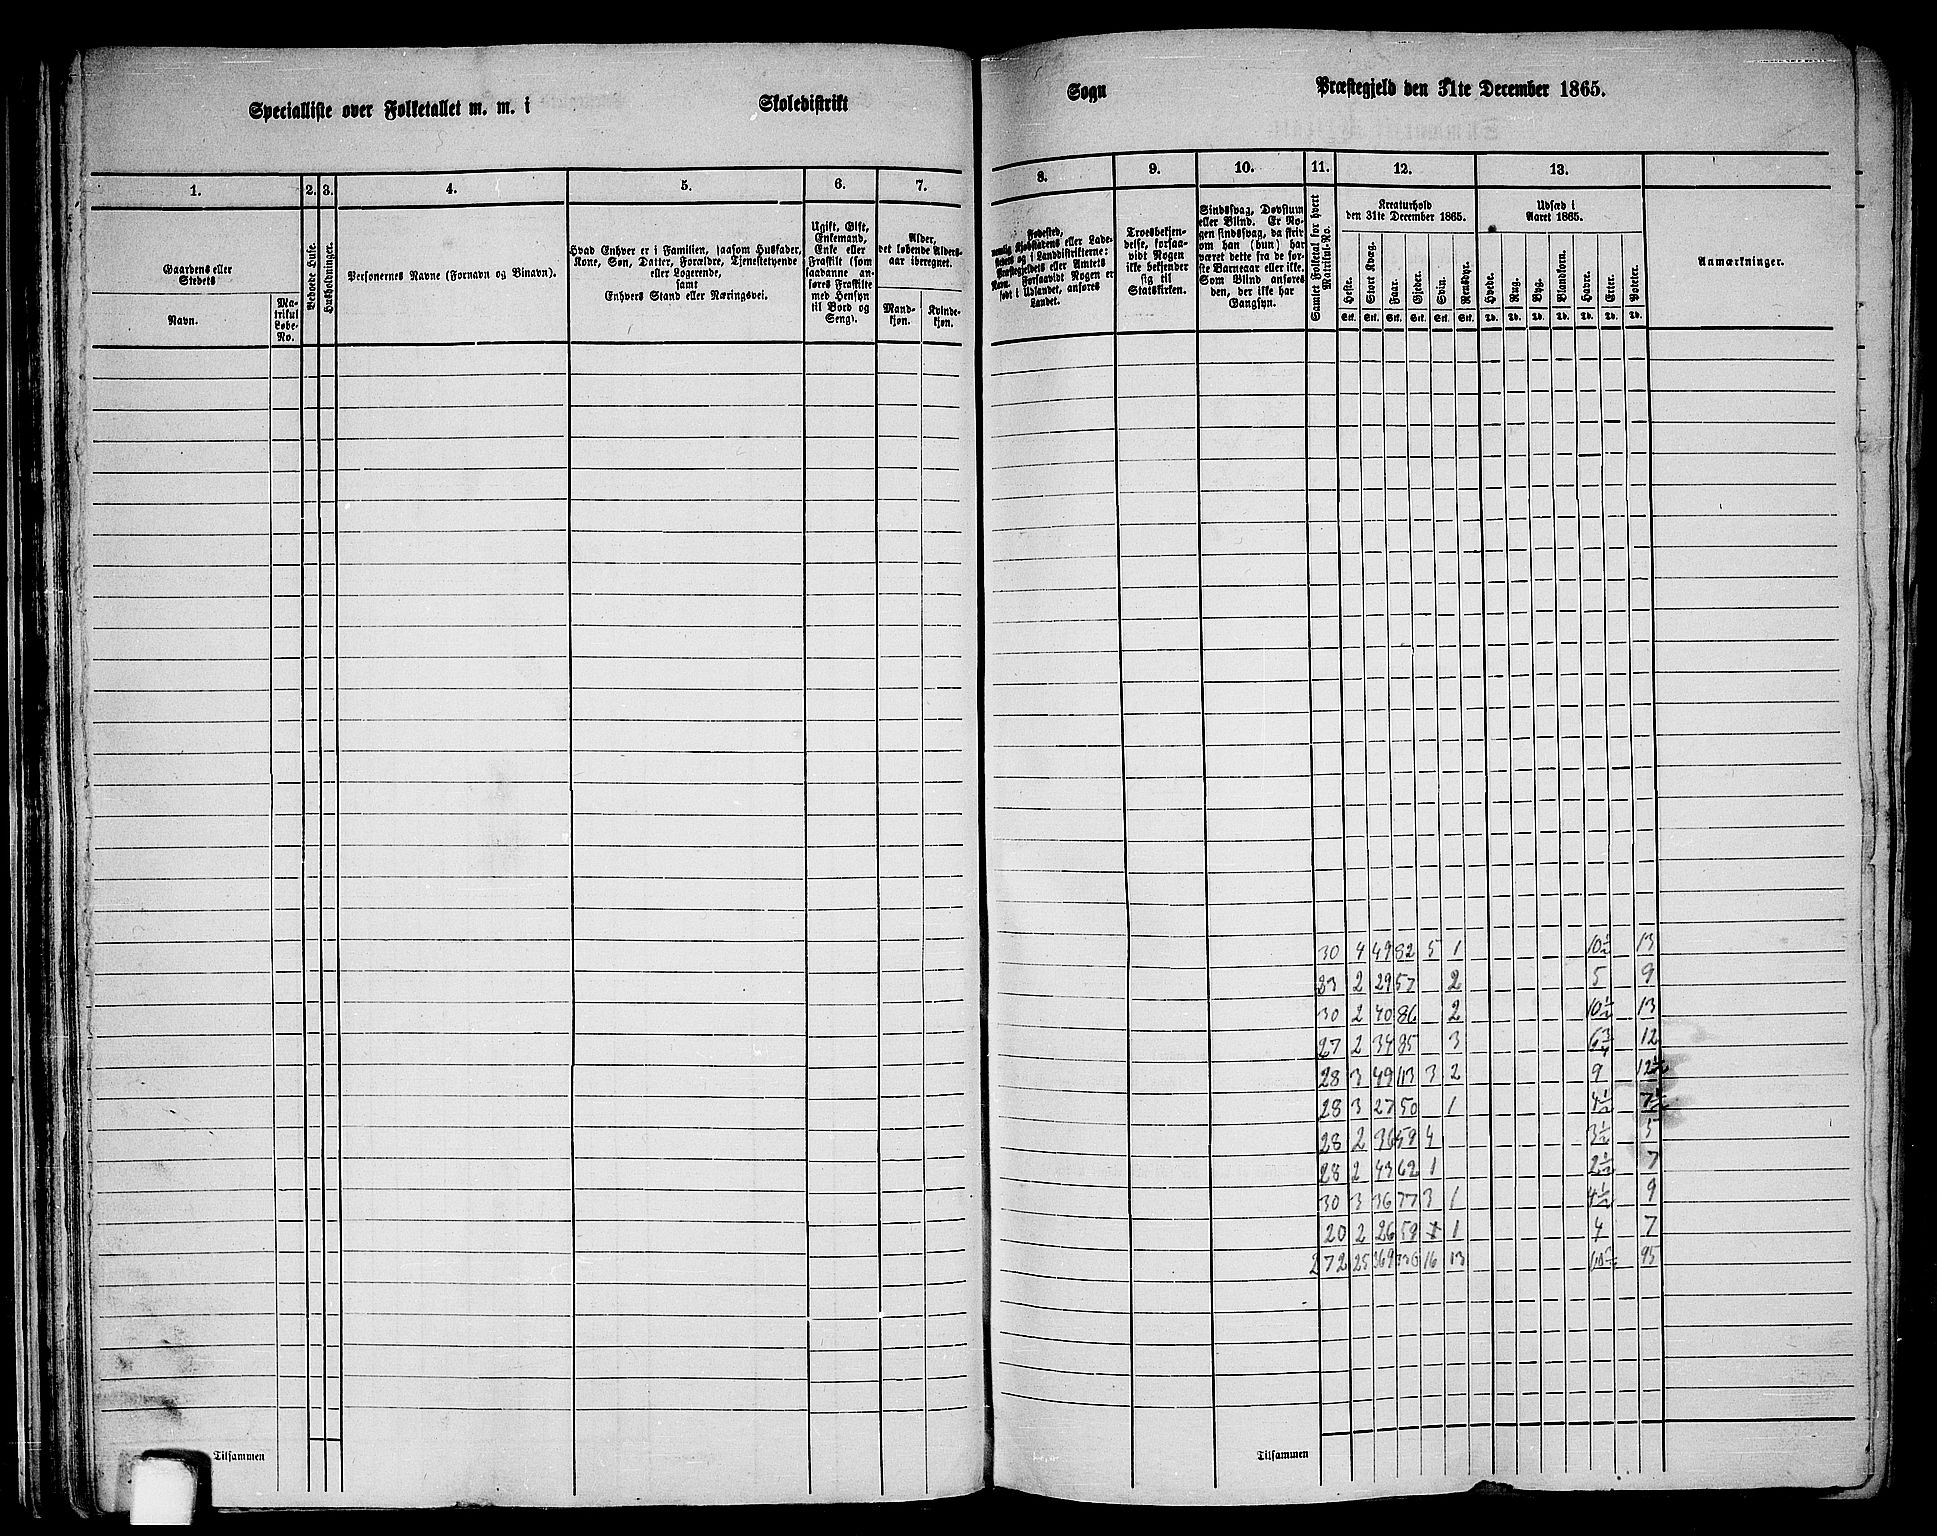 Specialliste over Folketallet m. m. i Skoledistrikt Sogn Præstegjeld den 31te December 1865.
1. 2. 3. 4. 5. 6. 7. 8. 9. 10. 11. 12. 13.
Gaardens eller Stedets
Navn.
Matrikul Løbe-No.
Beboede Huse.
Husholdninger.
Personernes Navne (Fornavn og Binavn).
Hvad Enhver er i Familien, saasom Husfader,
Kone, Søn, Datter, Forældre, Tjenestetyende
eller Logerende,
samt
Enhvers Stand eller Næringsvei.
Ugift, Gift,
Enkemand,
Enke eller
Fraskilt (som
saadanne an-
føres Fraskilte
med Hensyn
til Bord og
Seng).
Alder,
det løbende Alders-
aar iberegnet.
Mand-
kjøn.
Kvinde-
kjøn.
Fødested,
nemlig Kjøbstadens eller Lade-
stedets og i Landdistrikterne:
Præstegjeldets eller Amtets
Navn. Forsaavidt Nogen er
født i Udlandet, anføres
Landet.
Troesbekjen-
delse, forsaa-
vidt Nogen
ikke bekjender
sig til
Statskirken.
Sindssvag, Døvstum
eller Blind. Er No-
gen sindssvag, da skriv
om han (hun) har
været dette fra de før-
ste Barneaar eller ikke.
Som Blind anføres
den, der ikke har
Gangsyn.
Samlet Folketal for hvert
Matrikul-No.
Kreaturhold
den 31te December 1865.
Heste. Stort Kvæg. Faar. Gjeder. Svin. Rensdyr.
Stk. Stk. Stk. Stk. Stk. Stk.
Udsæd i
Aaret 1865.
Hvede. Rug. Byg. Blandkorn. Havre. Erter. Poteter.
Td. Td. Td. Td. Td. Td. Td.
Anmærkninger.
30 4 49 82 5 1 10½ 13
23 2 29 57 2 5 9
30 2 40 86 2 10½ 13
27 2 34 85 3 6¾ 12
28 3 49 113 3 2 9 12½
28 3 27 50 1 4½ 7½
28 2 36 59 4 3½ 5
28 2 43 62 1 2½ 7
30 3 36 77 3 1 4½ 9
20 2 26 59 1 4 7
272 25 369 16 13 95
Tilsammen Tilsammen